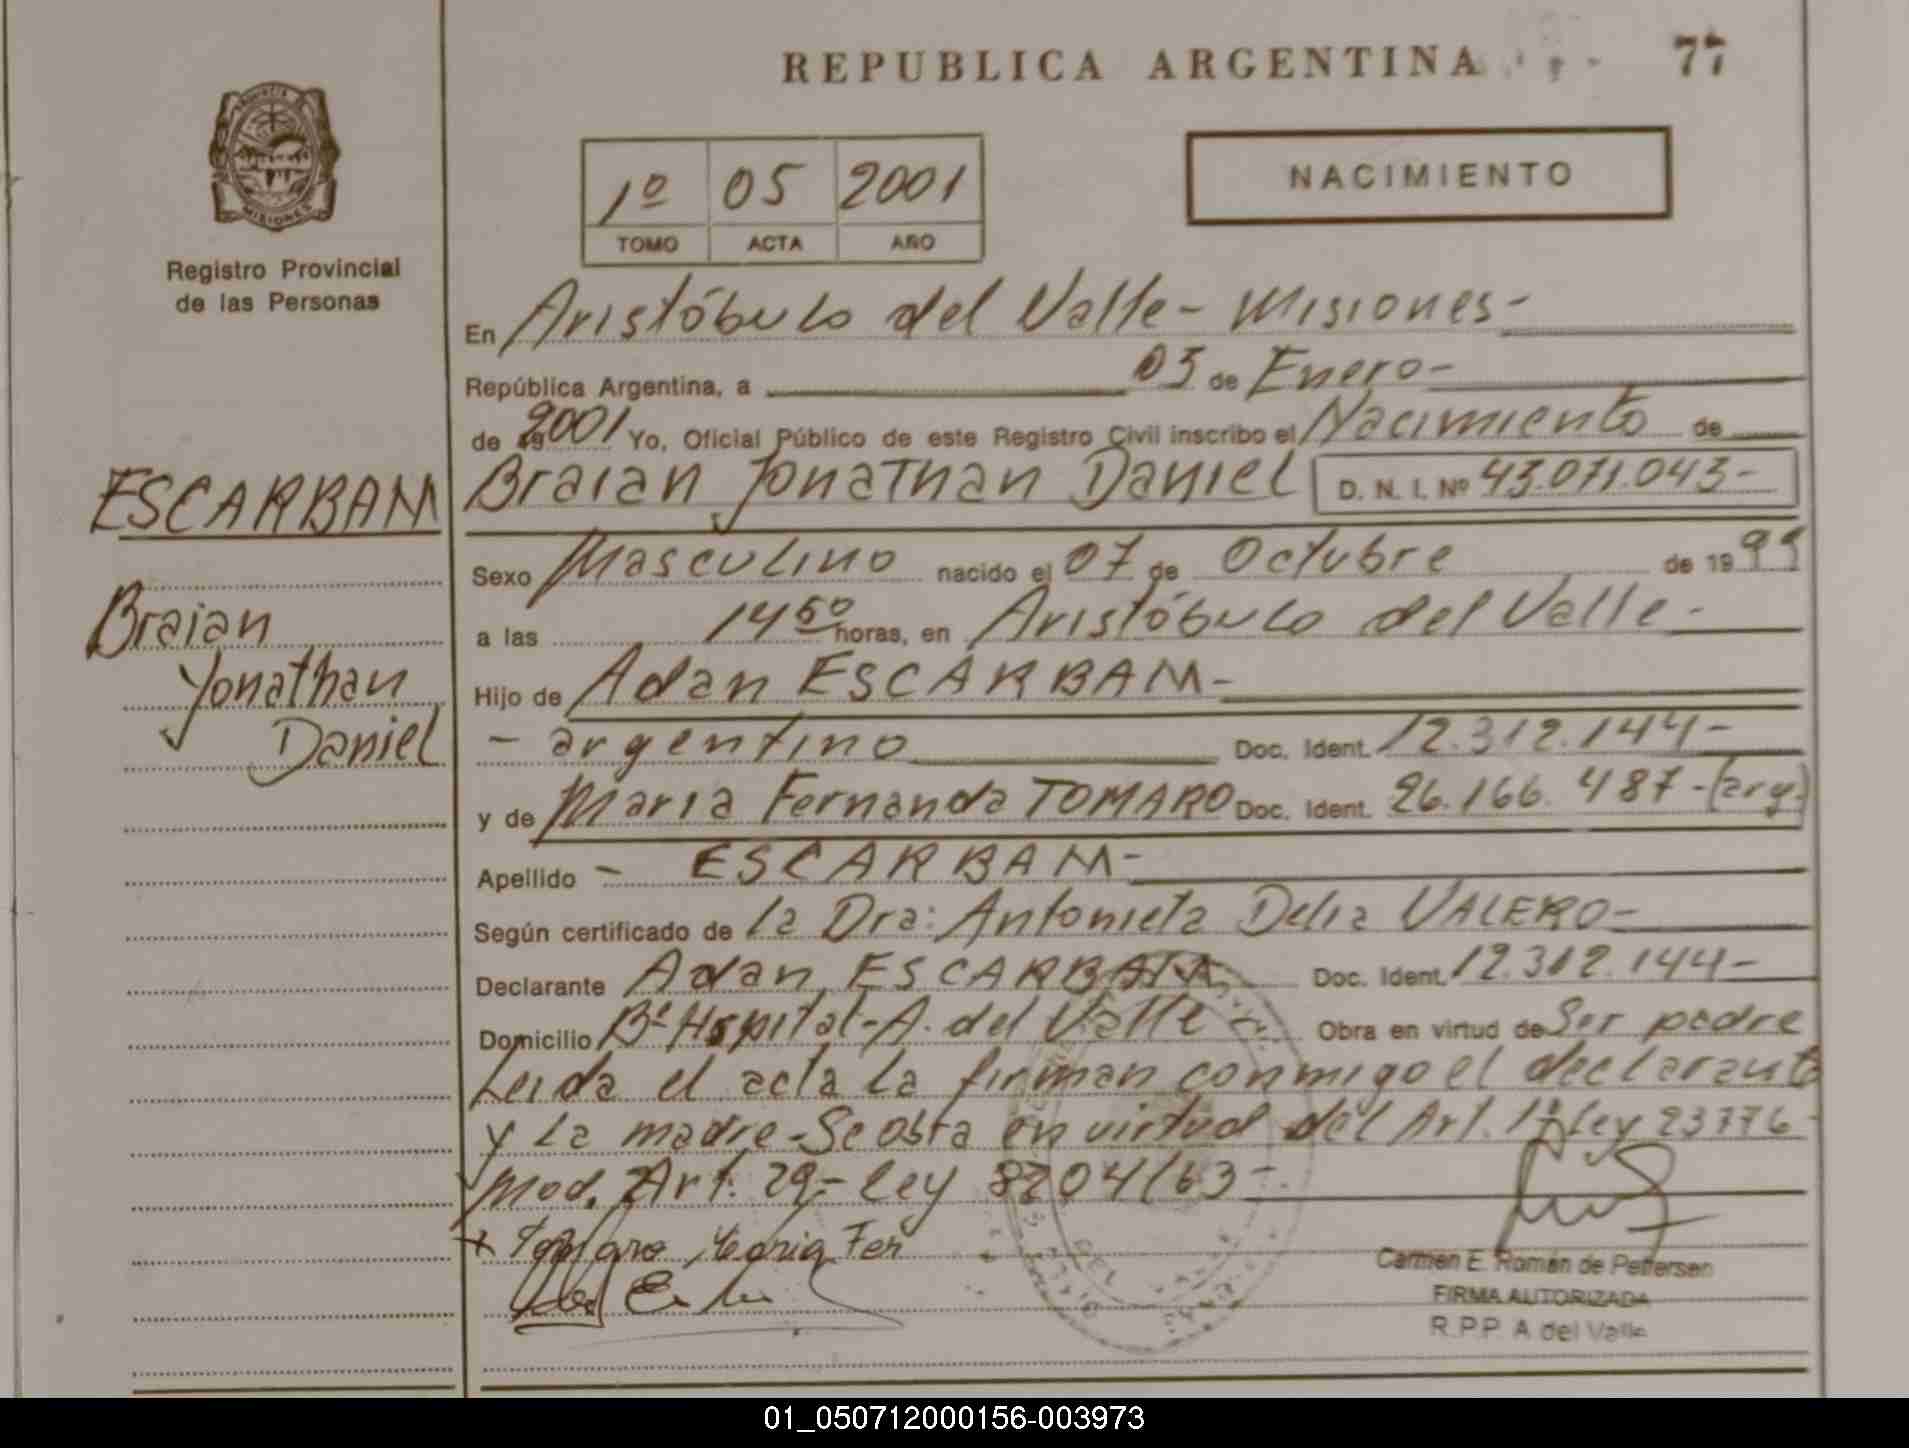 REPUBLICA ARGENTINA
77
PROVINCIA DE
MISIONES
Registro Provincial
de las Personas
1º 05 2001
TOMO ACTA AÑO
NACIMIENTO
En Aristóbulo del Valle - Misiones -
República Argentina, a 03 de Enero -
de 19 2001 Yo, Oficial Público de este Registro Civil inscribo el Nacimiento de
ESCARBAM
Braian Jonathan Daniel D. N. I. Nº 43.071.043 -
Sexo Masculino nacido el 07 de Octubre de 1999
Braian
Jonathan
Daniel
a las 14 50 horas, en Aristóbulo del Valle -
Hijo de Adan ESCARBAM -
- argentino Doc. Ident. 12.312.144 -
y de Maria Fernanda TOMARO Doc. Ident. 26.166.487 - (arg.)
Apellido - ESCARBAM -
Según certificado de la Dra: Antonieta Delia VALERO -
Declarante Adan ESCARBAM Doc. Ident. 12.312.144 -
Domicilio Bº Hospital - A. del Valle - Obra en virtud de Ser padre
Leida el acta la firman conmigo el declarante
y la madre - Se obra en virtud del Art. 1º ley 23776 -
Mod. Art. 29 - ley 8204/63 -
Maria Fer
Carmen E. Román de Pettersen
FIRMA AUTORIZADA
R.P.P. A del Valle
01_050712000156-003973